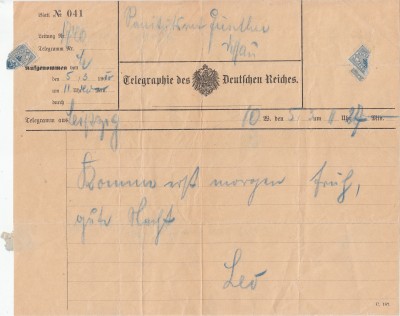 Blatt № 041
Leitung Nr.
Telegramm Nr.
Aufgenommen von
den 5. 3.
um 11
durch
Telegraphie des Deutschen Reiches.
Telegramm aus Leipzig 10 W. den 5 3 um 11 Uhr 27 Min.
Komme erst morgen früh,
gute Nacht
Leo